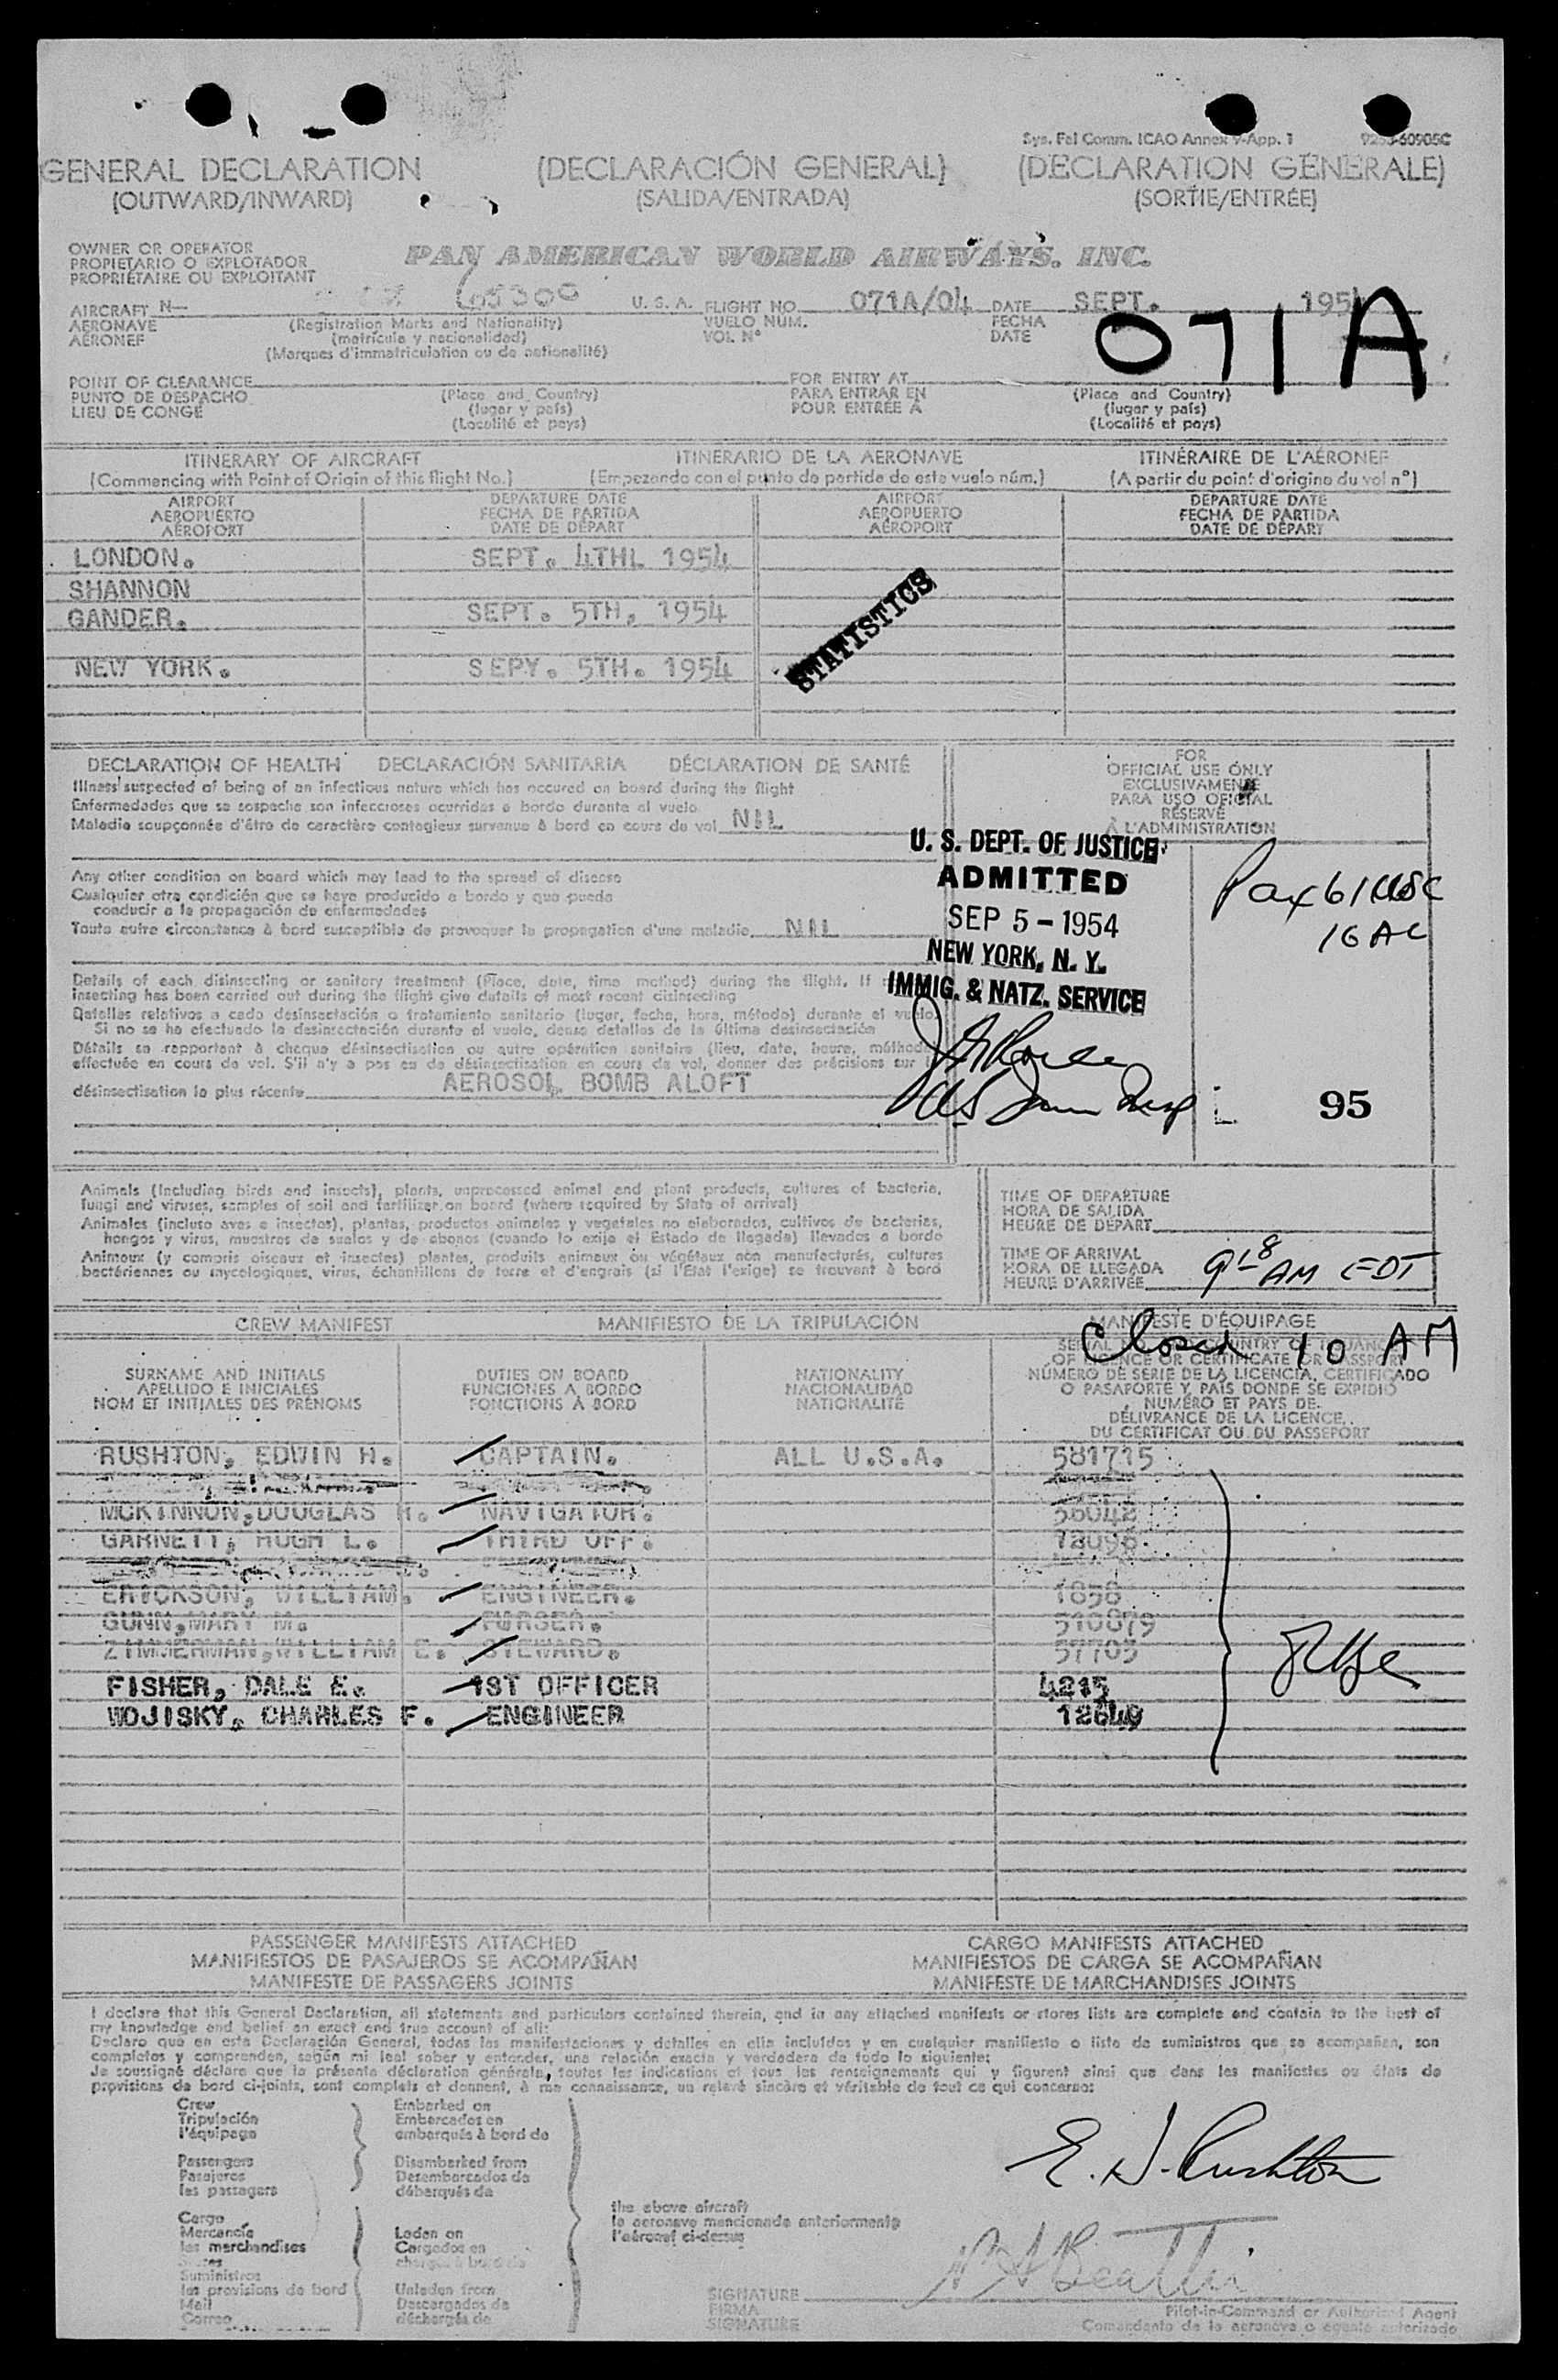 Sys. Fal Comm. ICAO Annex 9-App. 1
GENERAL DECLARATION (DECLARACIÓN GENERAL) (DECLARATION GÉNÉRALE)
(OUTWARD/INWARD) (SALIDA/ENTRADA) (SORTIE/ENTRÉE)
OWNER OR OPERATOR
PROPIETARIO O EXPLOTADOR
PROPRIÉTAIRE OU EXPLOITANT
PAN AMERICAN WORLD AIRWAYS, INC.
AIRCRAFT N— U. S. A. FLIGHT NO. 071A/04 DATE SEPT. 1954
AERONAVE (Registration Marks and Nationality) VUELO NUM. FECHA
AÉRONEF (matrícula y nacionalidad) VOL Nº DATE
(Marques d'immatriculation ou de nationalité)
071A
POINT OF CLEARANCE FOR ENTRY AT
PUNTO DE DESPACHO (Place and Country) PARA ENTRAR EN (Place and Country)
LIEU DE CONGÉ (lugar y país) POUR ENTRÉE À (lugar y país)
(Localité et pays) (Localité et pays)
ITINERARY OF AIRCRAFT ITINERARIO DE LA AERONAVE ITINÉRAIRE DE L'AÉRONEF
(Commencing with Point of Origin of this flight No.) (Empezando con el punto de partida de este vuelo núm.) (A partir du point d'origine du vol nº)
AIRPORT DEPARTURE DATE AIRPORT DEPARTURE DATE
AEROPUERTO FECHA DE PARTIDA AEROPUERTO FECHA DE PARTIDA
AÉROPORT DATE DE DÉPART AÉROPORT DATE DE DÉPART
LONDON. SEPT. 4THL 1954
SHANNON
GANDER. SEPT. 5TH, 1954
STATISTICS
NEW YORK. SEPY. 5TH. 1954
DECLARATION OF HEALTH DECLARACIÓN SANITARIA DÉCLARATION DE SANTÉ
Illness suspected of being of an infectious nature which has occured on board during the flight
Enfermedades que se sospecha son infecciosas ocurridas a bordo durante el vuelo
Maladie soupçonnée d'être de caractère contagieux survenue à bord en cours de vol NIL
FOR
OFFICIAL USE ONLY
EXCLUSIVAMENTE
PARA USO OFICIAL
RÉSERVÉ
À L'ADMINISTRATION
Any other condition on board which may lead to the spread of disease
Cualquier otra condición que se haya producido a bordo y que pueda
conducir a la propagación de enfermedades
Toute autre circonstance à bord susceptible de provoquer la propagation d'une maladie NIL
U. S. DEPT. OF JUSTICE
ADMITTED
SEP 5 - 1954
NEW YORK, N. Y.
IMMIG. & NATZ. SERVICE
Pax 61 USC
16 AC
Details of each disinsecting or sanitary treatment (Place, date, time method) during the flight. If
insecting has been carried out during the flight give details of most recent disinsecting
Detalles relativos a cada desinsectación o tratamiento sanitario (lugar, fecha, hora, método) durante el vuelo.
Si no se ha efectuado la desinsectación durante el vuelo, dense detalles de la última desinsectación
Détails se rapportant à chaque désinsectisation ou autre opération sanitaire (lieu, date, heure, méthode
effectuée en cours de vol. S'il n'y a pas eu de désinsectisation en cours de vol, donner des précisions sur
désinsectisation la plus récente AEROSOL BOMB ALOFT
95
Animals (Including birds and insects), plants, unprocessed animal and plant products, cultures of bacteria,
fungi and viruses, samples of soil and fertilizer on board (where required by State of arrival)
Animales (incluso aves e insectos), plantas, productos animales y vegetales no elaborados, cultivos de bacterias,
hongos y virus, muestras de suelos y de abonos (cuando lo exija el Estado de llegada) llevados a bordo
Animaux (y compris oiseaux et insectes) plantes, produits animaux ou végétaux non manufacturés, cultures
bactériennes ou mycologiques, virus, échantillons de terre et d'engrais (si l'État l'exige) se trouvant à bord
TIME OF DEPARTURE
HORA DE SALIDA
HEURE DE DÉPART
TIME OF ARRIVAL
HORA DE LLEGADA
HEURE D'ARRIVÉE
9 18 AM EDT
CREW MANIFEST MANIFIESTO DE LA TRIPULACIÓN MANIFESTE D'ÉQUIPAGE
Closed 10 AM
SURNAME AND INITIALS DUTIES ON BOARD NATIONALITY
APELLIDO E INICIALES FUNCIONES A BORDO NACIONALIDAD
NOM ET INITIALES DES PRÉNOMS FONCTIONS À BORD NATIONALITÉ
OF LICENCE OR CERTIFICATE OR PASSPORT
NÚMERO DE SERIE DE LA LICENCIA, CERTIFICADO
O PASAPORTE Y PAÍS DONDE SE EXPIDIÓ
NUMÉRO ET PAYS DE
DÉLIVRANCE DE LA LICENCE,
DU CERTIFICAT OU DU PASSEPORT
RUSHTON, EDWIN H. CAPTAIN. ALL U.S.A. 581715
MCKINNON,DOUGLAS H. NAVIGATOR. 56042
GARNETT, HUGH L. THIRD OFF. 72096
ERICKSON, WILLIAM. ENGINEER. 1858
GUNN,MARY M. PURSER. 510879
ZIMMERMAN,WILLIAM E. STEWARD. 57703
FISHER, DALE E. 1ST OFFICER 4215
WOJISKY, CHARLES F. ENGINEER 12649
PASSENGER MANIFESTS ATTACHED CARGO MANIFESTS ATTACHED
MANIFIESTOS DE PASAJEROS SE ACOMPAÑAN MANIFIESTOS DE CARGA SE ACOMPAÑAN
MANIFESTE DE PASSAGERS JOINTS MANIFESTE DE MARCHANDISES JOINTS
I declare that this General Declaration, all statements and particulars contained therein, and in any attached manifests or stores lists are complete and contain to the best of
my knowledge and belief an exact and true account of all:
Declaro que en esta Declaración General, todas las manifestaciones y detalles en ella incluídos y en cualquier manifiesto o lista de suministros que se acompañan, son
completos y comprenden, según mi leal saber y entender, una relación exacta y verdadera de todo lo siguiente:
Je soussigné déclare que la présente déclaration générale, toutes les indications et tous les renseignements qui y figurent ainsi que dans les manifestes ou états de
provisions de bord ci-joints, sont complets et donnent, à ma connaissance, un relevé sincère et véritable de tout ce qui concerne:
Crew Embarked on
Tripulación Embarcados en
l'équipage embarqués à bord de
Passengers Disembarked from
Pasajeros Desembarcados de
les passagers débarqués de
E. H. Rushton
the above aircraft
la aeronave mencionada anteriormente
l'aéronef ci-dessus
Cargo
Mercancía Laden on
les marchandises Cargados en
Stores chargés à bord de
Suministros
les provisions de bord Unladen from
Mail Descargados de
Correo déchargés de
SIGNATURE
FIRMA
SIGNATURE
Pilot-in-Command or Authorized Agent
Comandante de la aeronave o agente autorizado